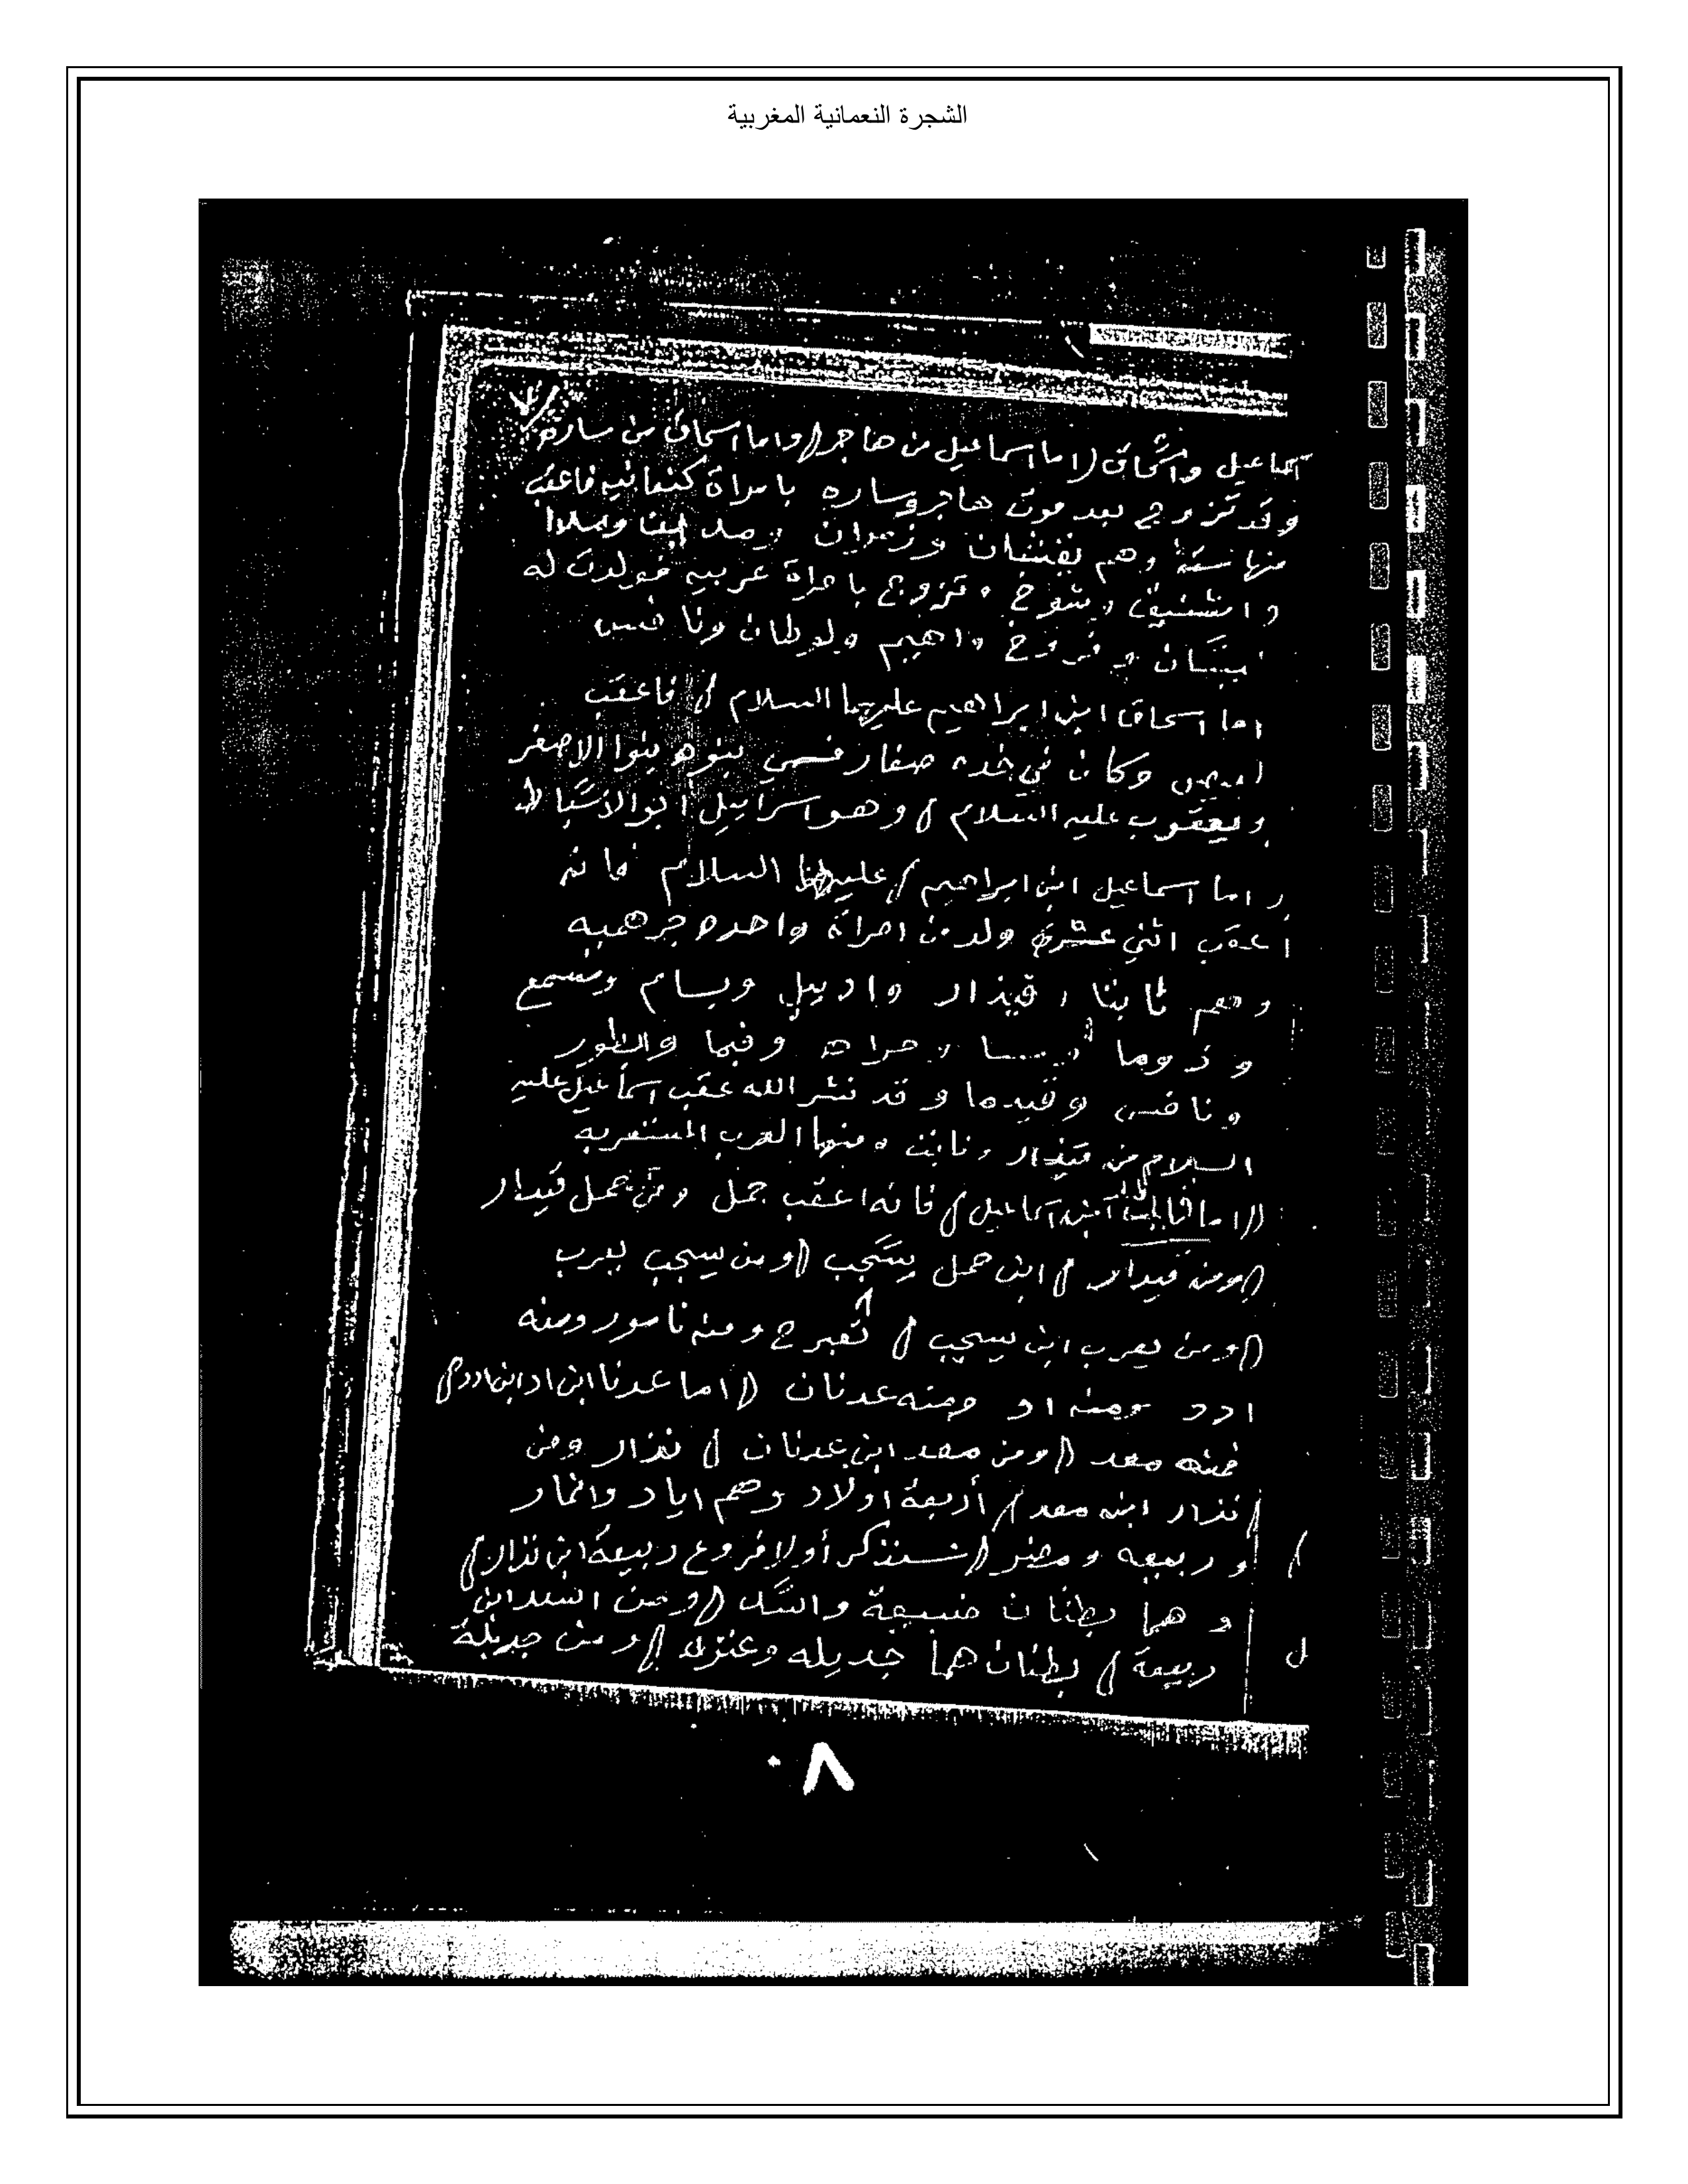 الشجرة النعمانية المغربية
اسماعيل واسحاق (اما اسماعيل من هاجر) واما اسحاق من سارة
وقد تزوج بعد موت هاجر وساره بامراة كنعانيه فاعقب
منها ستة وهم يقشان وزمران
وتزوج بامراة عربيه فولدت له
وفروخ واهيم ولوطان ونافس
اما اسحاق ابن ابراهيم عليهما السلام) فاعقب
وكان في خده صفار فسمي بنوه بنوا الاصفر
ويعقوب عليه السلام) وهو اسرائيل ابوا الاسباط
واما اسماعيل ابن ابراهيم) عليهما السلام فانه
اعقب اثني عشرة ولد من امراة واحده جرهميه
وهم ثابتا وقيذار واد بيل وبسام ومسمع
وذوما وفيما والطور
ونافس وقيدما وقد نشر الله عقب اسماعيل عليه
السلام من قيذار ونابت ومنها العرب المستعربه
(اما ابن اسماعيل) فانه اعقب حمل ومن حمل قيدار
(ومن قيدار) ابن حمل يشجب (ومن يسجب يعرب
(ومن يعرب ابن يسجب) تعبرح ومنه ناسور ومنه
ادد ومنه اد ومنه عدنان (اما عدنا ابن اد ابن ادد)
فمنه معد (ومن معد ابن عدنان) نذار ومن
نذار ابن معد) أربعة اولاد وهم اياد وانمار
وربيعه ومضر (سنذكر أولا فروع ربيعة ابن نذار)
وهما بطنان ضبيعة واسد (ومن اسد ابن
ربيعة) بطنان هما جديله وعنزه (ومن جديلة
٨